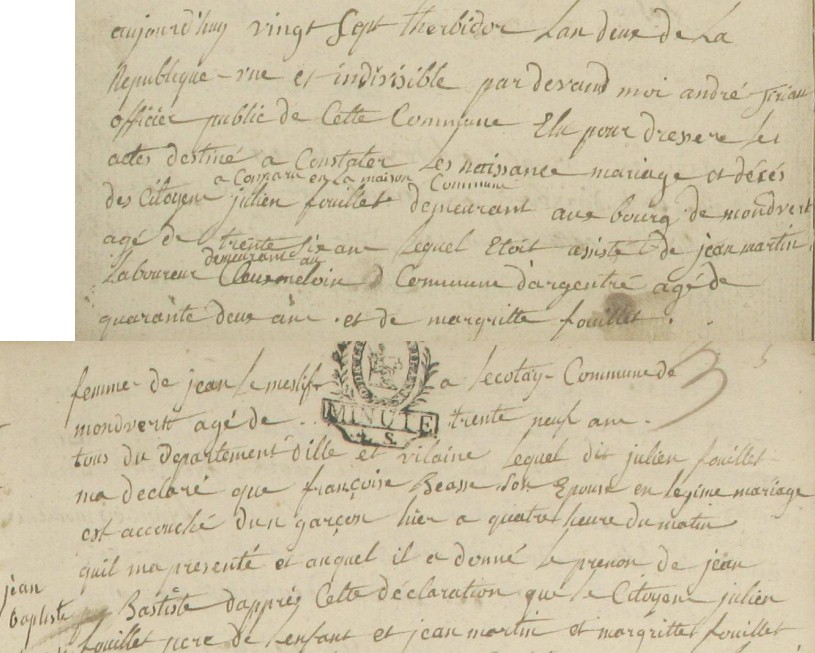 aujourd'huy vingt sept therbidor Lan deux de La
Republique vne et indivisible par devand moi andré
officier public de Cette Commune Elu pour dressere les
actes destiné a Constater Les naissance mariage et décés
a Comparu en La maison Commune
des Citoyens julien fouillet demeurant aux bourg de mondvert
agé de trente six ans lequel Etoit asisté de jean martin
demeurant au
Laboureur Commune d'argentré agé de
quarante deux ans . et de margritte fouillet .
femme de jean Lemeslif a Lecotay Commune de
MINUTE
mondvert agé de . . trente neuf ans .
tous du Departement Dille et vilaine Lequel dit julien fouillet
ma declaré que françoise Beasse son Epouse en legime mariage
est accouché dun garçon hier a quatre heure du matin
quil ma presenté et auquel il a donné le prenon de jean
jean
baptiste
Bastiste daprés Cette déclaration que le Citoyen julien
fouillet pere de lenfant et jean martin et margrittet fouillet